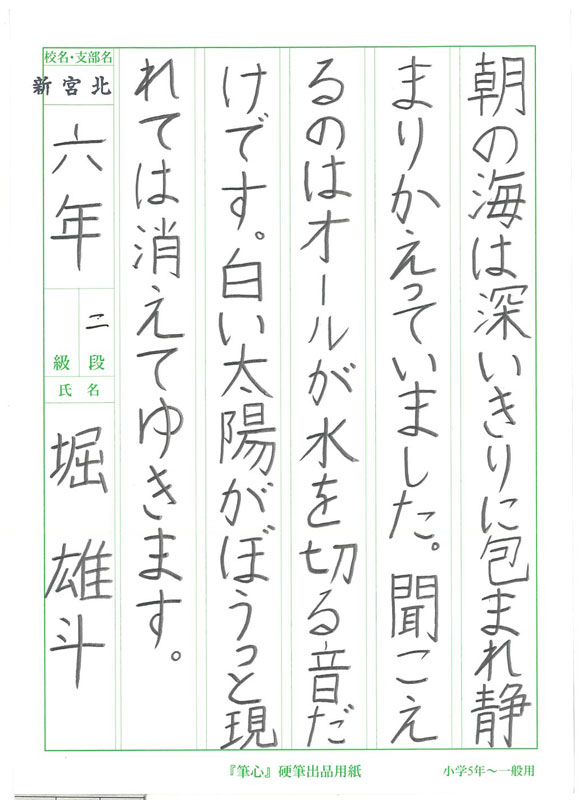 朝の海は深いきりに包まれ静
まりかえっていました。聞こえ
るのはオールが水を切る音だ
けです。白い太陽がぼうっと現
れては消えてゆきます。
校名・支部名
新宮北
六年
二
級段
氏名
堀雄斗
『筆心』硬筆出品用紙
小学5年～一般用